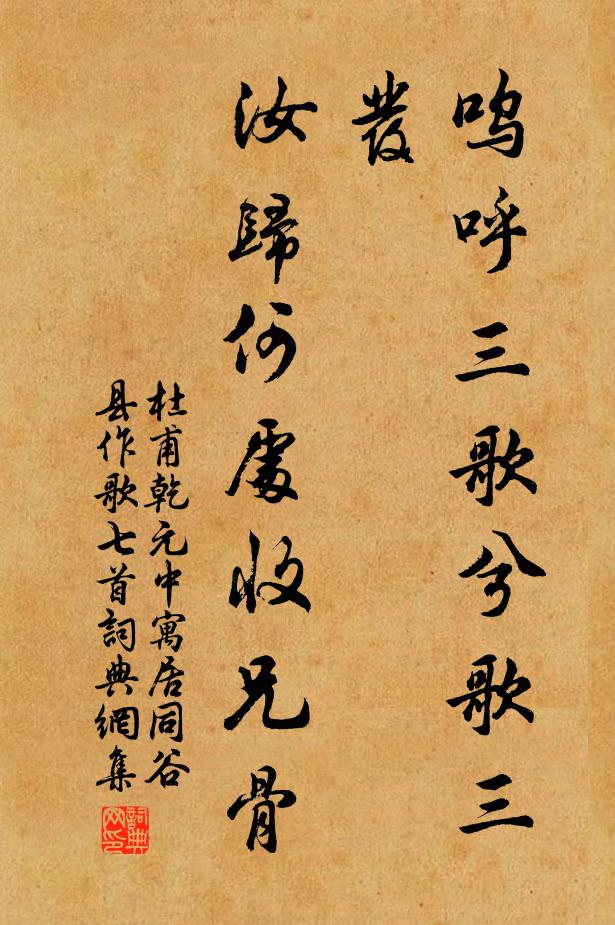 嗚呼三歌兮歌三
發
汝歸何處收兄骨
杜甫乾元中寓居同谷
县作歌七首詞典網集
詞典
网印